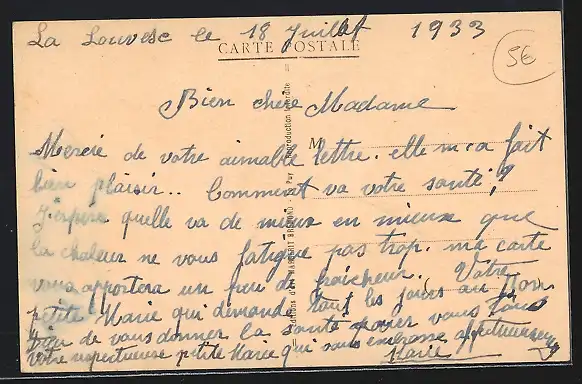 La Louvesc le 18 Juillet 1933
CARTE POSTALE
5€
Bien chère Madame
M
Mercie de votre aimable lettre. elle m'a fait
bien plaisir.. Comment va votre santé!?
J'espère quelle va de mieux en mieux que
la chaleur ne vous fatigue pas trop. ma carte
vous apportera un peu de fraicheur. Votre
petite Marie qui demande tout les jours au Bon
Dieu de vous donner la santé pour vous tous
votre respectueuse petite Marie qui vous embrasse
Marie
Reproduction interdite